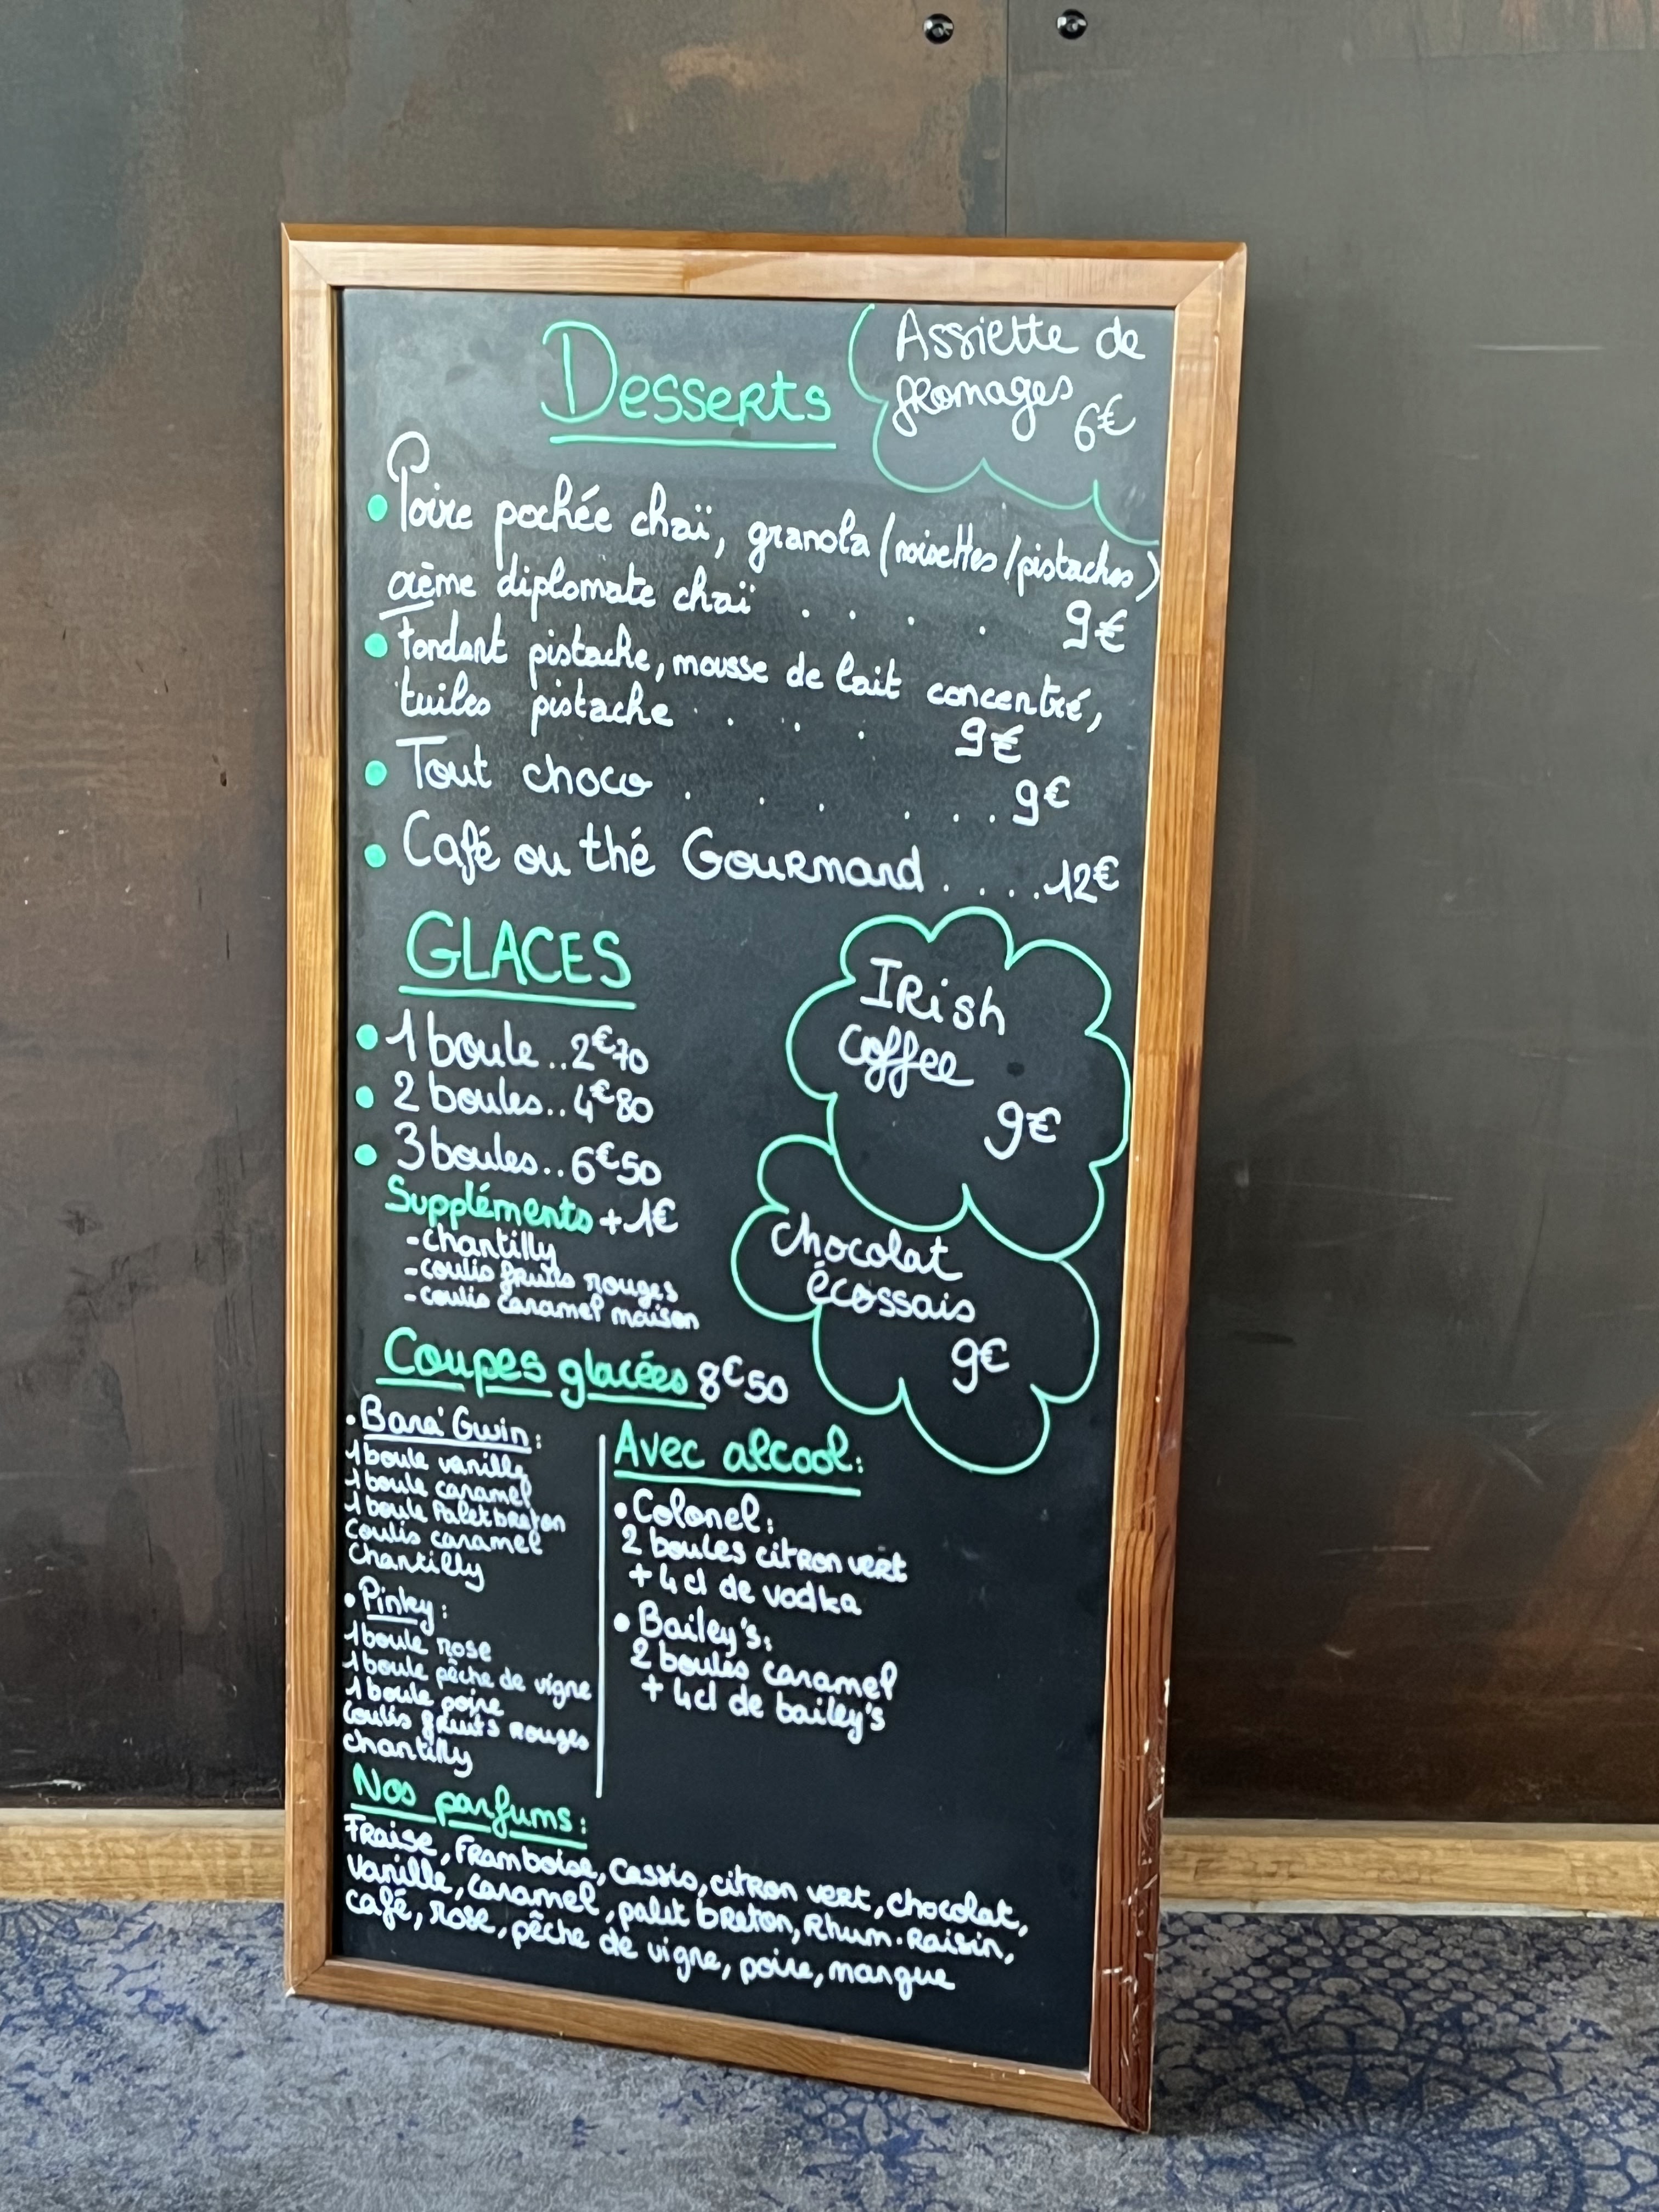 Desserts
Assiette de
fromages
6€
• Poire pochée chaï, granola (noisettes/pistaches)
crème diplomate chaï . . . . 9€
• Fondant pistache, mousse de lait concentré,
tuiles pistache . . . . 9€
• Tout choco . . . . . . . 9€
• Café ou thé Gourmand . . . . 12€
GLACES
• 1 boule .. 2€70
• 2 boules .. 4€80
• 3 boules .. 6€50
Suppléments + 1€
- chantilly
- coulis fruits rouges
- coulis caramel maison
Irish
coffee
9€
Chocolat
écossais
9€
Coupes glacées 8€50
• Bara' Gwin :
1 boule vanille
1 boule caramel
1 boule Palet breton
Coulis caramel
Chantilly
• Pinky :
1 boule rose
1 boule pêche de vigne
1 boule poire
Coulis fruits rouges
chantilly
Avec alcool :
• Colonel :
2 boules citron vert
+ 4 cl de vodka
• Bailey's :
2 boules caramel
+ 4cl de bailey's
Nos parfums :
Fraise, Framboise, cassis, citron vert, chocolat,
Vanille, caramel, palet breton, Rhum-Raisin,
café, rose, pêche de vigne, poire, mangue